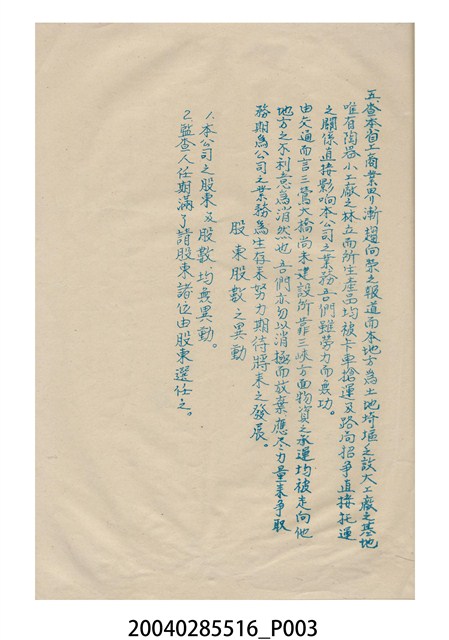 五、查本省工商業界漸趨向榮之報道而本地方為土地埆塭乏設大工廠之基地
唯有陶器小工廠之林立而所生產品均被卡車搶運及路局招爭直接託運
之關係直接影响本公司之業務吾們雖勞力而無功。
由交通而言三鶯大橋尚未建設所靠三峽方面物資之承運均被走向他
地方之不利意為消然也吾們亦勿以消極而放棄應尽力量来爭取
務期為公司之業務為生存来努力期待將来之發展。
股東股數之異動
1.本公司之股東及股數均無異動。
2.監查人任期滿了請股東諸位由股東選任之。
20040285516_P003